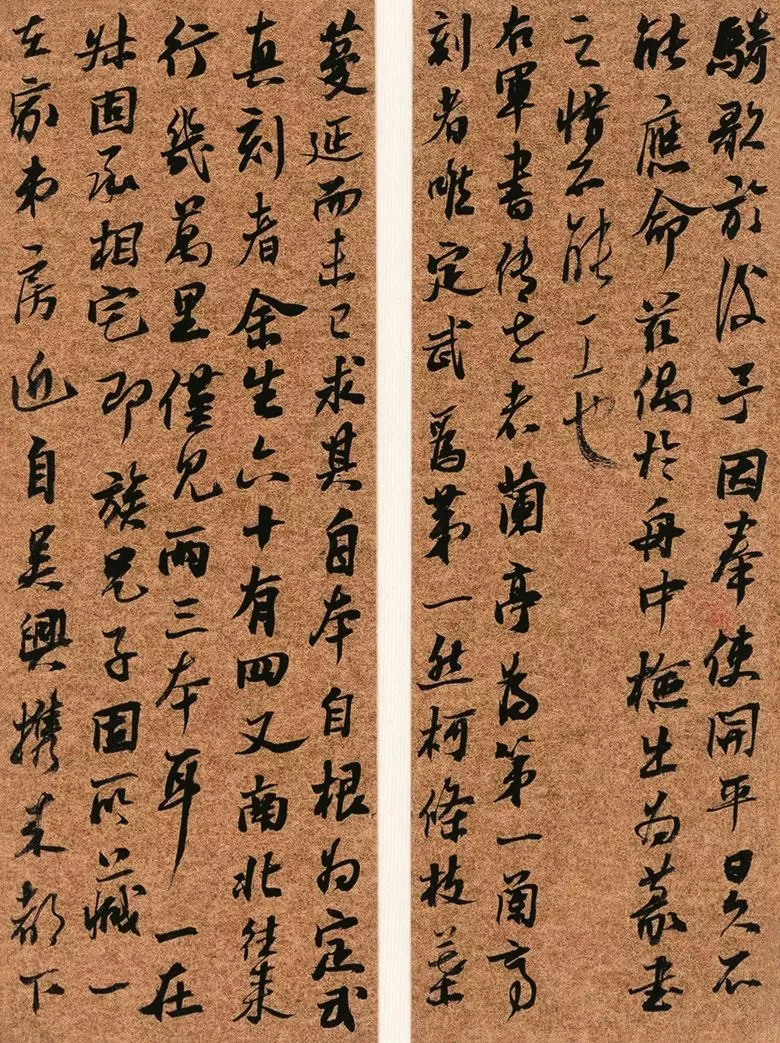 騎歌於後予因奉使開平日久不
能應命茲偶於舟中檢出為篆書
之惜不能工也
右軍書傳世者蘭亭為第一蘭亭
刻者唯定武為第一然柯條枝葉
蔓延而未已求其自本自根為定武
真刻者余生六十有四又南北往来
行幾萬里僅見兩三本耳一在
叔固丞相宅即族兄子固所藏一
在家弟房近自吳興攜来都下